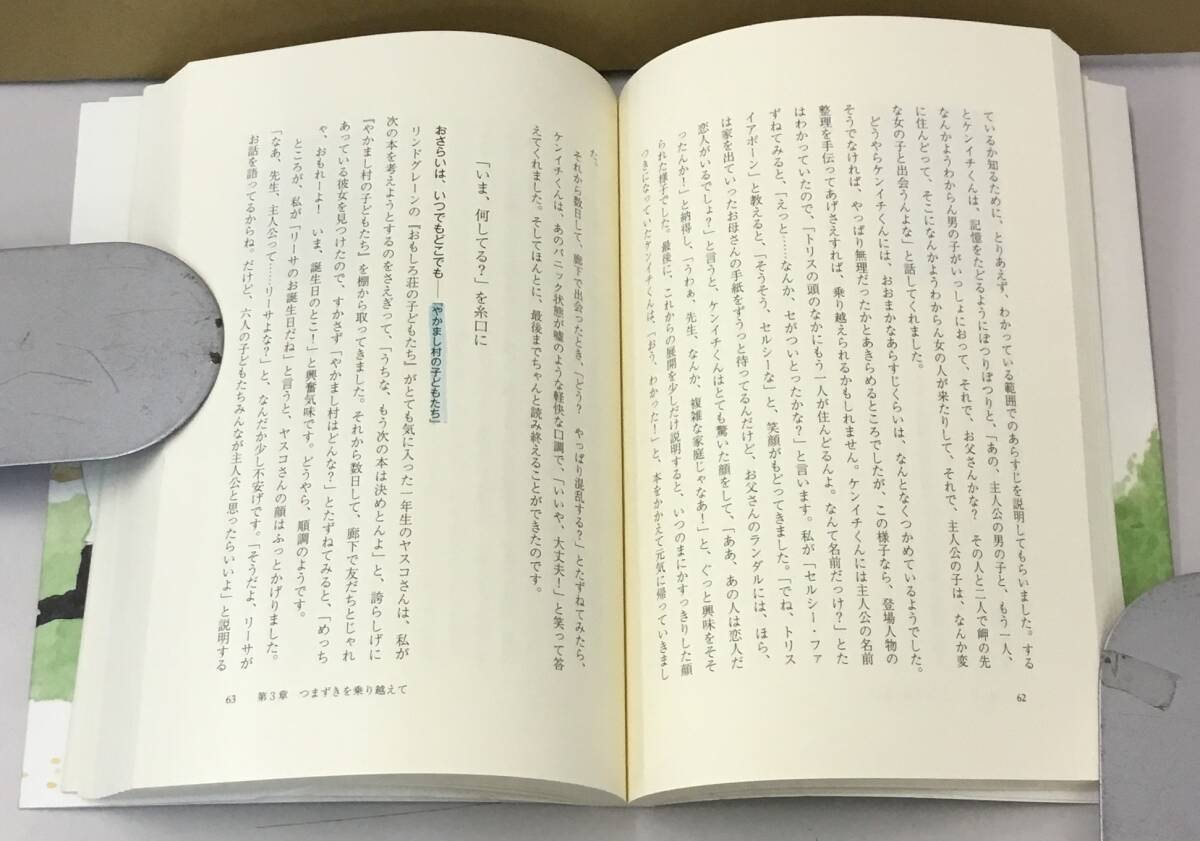 ているか知るために、とりあえず、わかっている範囲でのあらすじを説明してもらいました。する
とケンイチくんは、記憶をたどるようにぽつりぽつりと、「あの、主人公の男の子と、もう一人、
なんかようわからん男の子がいっしょにおって、それで、お父さんかな？ その人と二人で岬の先
に住んどって、そこになんかようわからん女の人が来たりして、それで、主人公の子は、なんか変
な女の子と出会うんよな」と話してくれました。
どうやらケンイチくんには、おおまかなあらすじくらいは、なんとなくつかめているようでした。
そうでなければ、やっぱり無理だったかとあきらめるところでしたが、この様子なら、登場人物の
整理を手伝ってあげさえすれば、乗り越えられるかもしれません。ケンイチくんには主人公の名前
はわかっていたので、「トリスの頭のなかにもう一人が住んどるんよ。なんて名前だっけ？」とた
ずねてみると、「えっと……なんか、セがついとったかな？」と言います。私が「セルシー・ファ
イアボーン」と教えると、「そうそう、セルシーな」と、笑顔がもどってきました。「でね、トリス
は家を出ていったお母さんの手紙をずうっと待ってるんだけど、お父さんのランダルには、ほら、
恋人がいるでしょ？」と言うと、ケンイチくんはとても驚いた顔をして、「ああ、あの人は恋人だ
ったんか！」と納得し、「うわぁ、先生、なんか、複雑な家庭じゃなあ！」と、ぐっと興味をそそ
られた様子でした。最後に、これからの展開を少しだけ説明すると、いつのまにかすっきりした顔
つきになっていたケンイチくんは、「おう、わかった！」と、本をかかえて元気に帰っていきまし
62
た。
それから数日して、廊下で出会ったとき、「どう？ やっぱり混乱する？」とたずねてみたら、
ケンイチくんは、あのパニック状態が嘘のような軽快な口調で、「いいや、大丈夫！」と笑って答
えてくれました。そしてほんとに、最後までちゃんと読み終えることができたのです。
「いま、何してる？」を糸口に
おさらいは、いつでもどこでも──『やかまし村の子どもたち』
リンドグレーンの『おもしろ荘の子どもたち』がとても気に入った一年生のヤスコさんは、私が
次の本を考えようとするのをさえぎって、「うちな、もう次の本は決めとんよ」と、誇らしげに
『やかまし村の子どもたち』を棚から取ってきました。それから数日して、廊下で友だちとじゃれ
あっている彼女を見つけたので、すかさず「やかまし村はどんな？」とたずねてみると、「めっち
ゃ、おもれーよ！ いま、誕生日のとこ！」と興奮気味です。どうやら、順調のようです。
ところが、私が「リーサのお誕生日だね」と言うと、ヤスコさんの顔はふっとかげりました。
「なあ、先生、主人公って……リーサよな？」と、なんだか少し不安げです。「そうだよ、リーサが
お話を語ってるからね。だけど、六人の子どもたちみんなが主人公と思ったらいいよ」と説明する
63 第3章 つまずきを乗り越えて